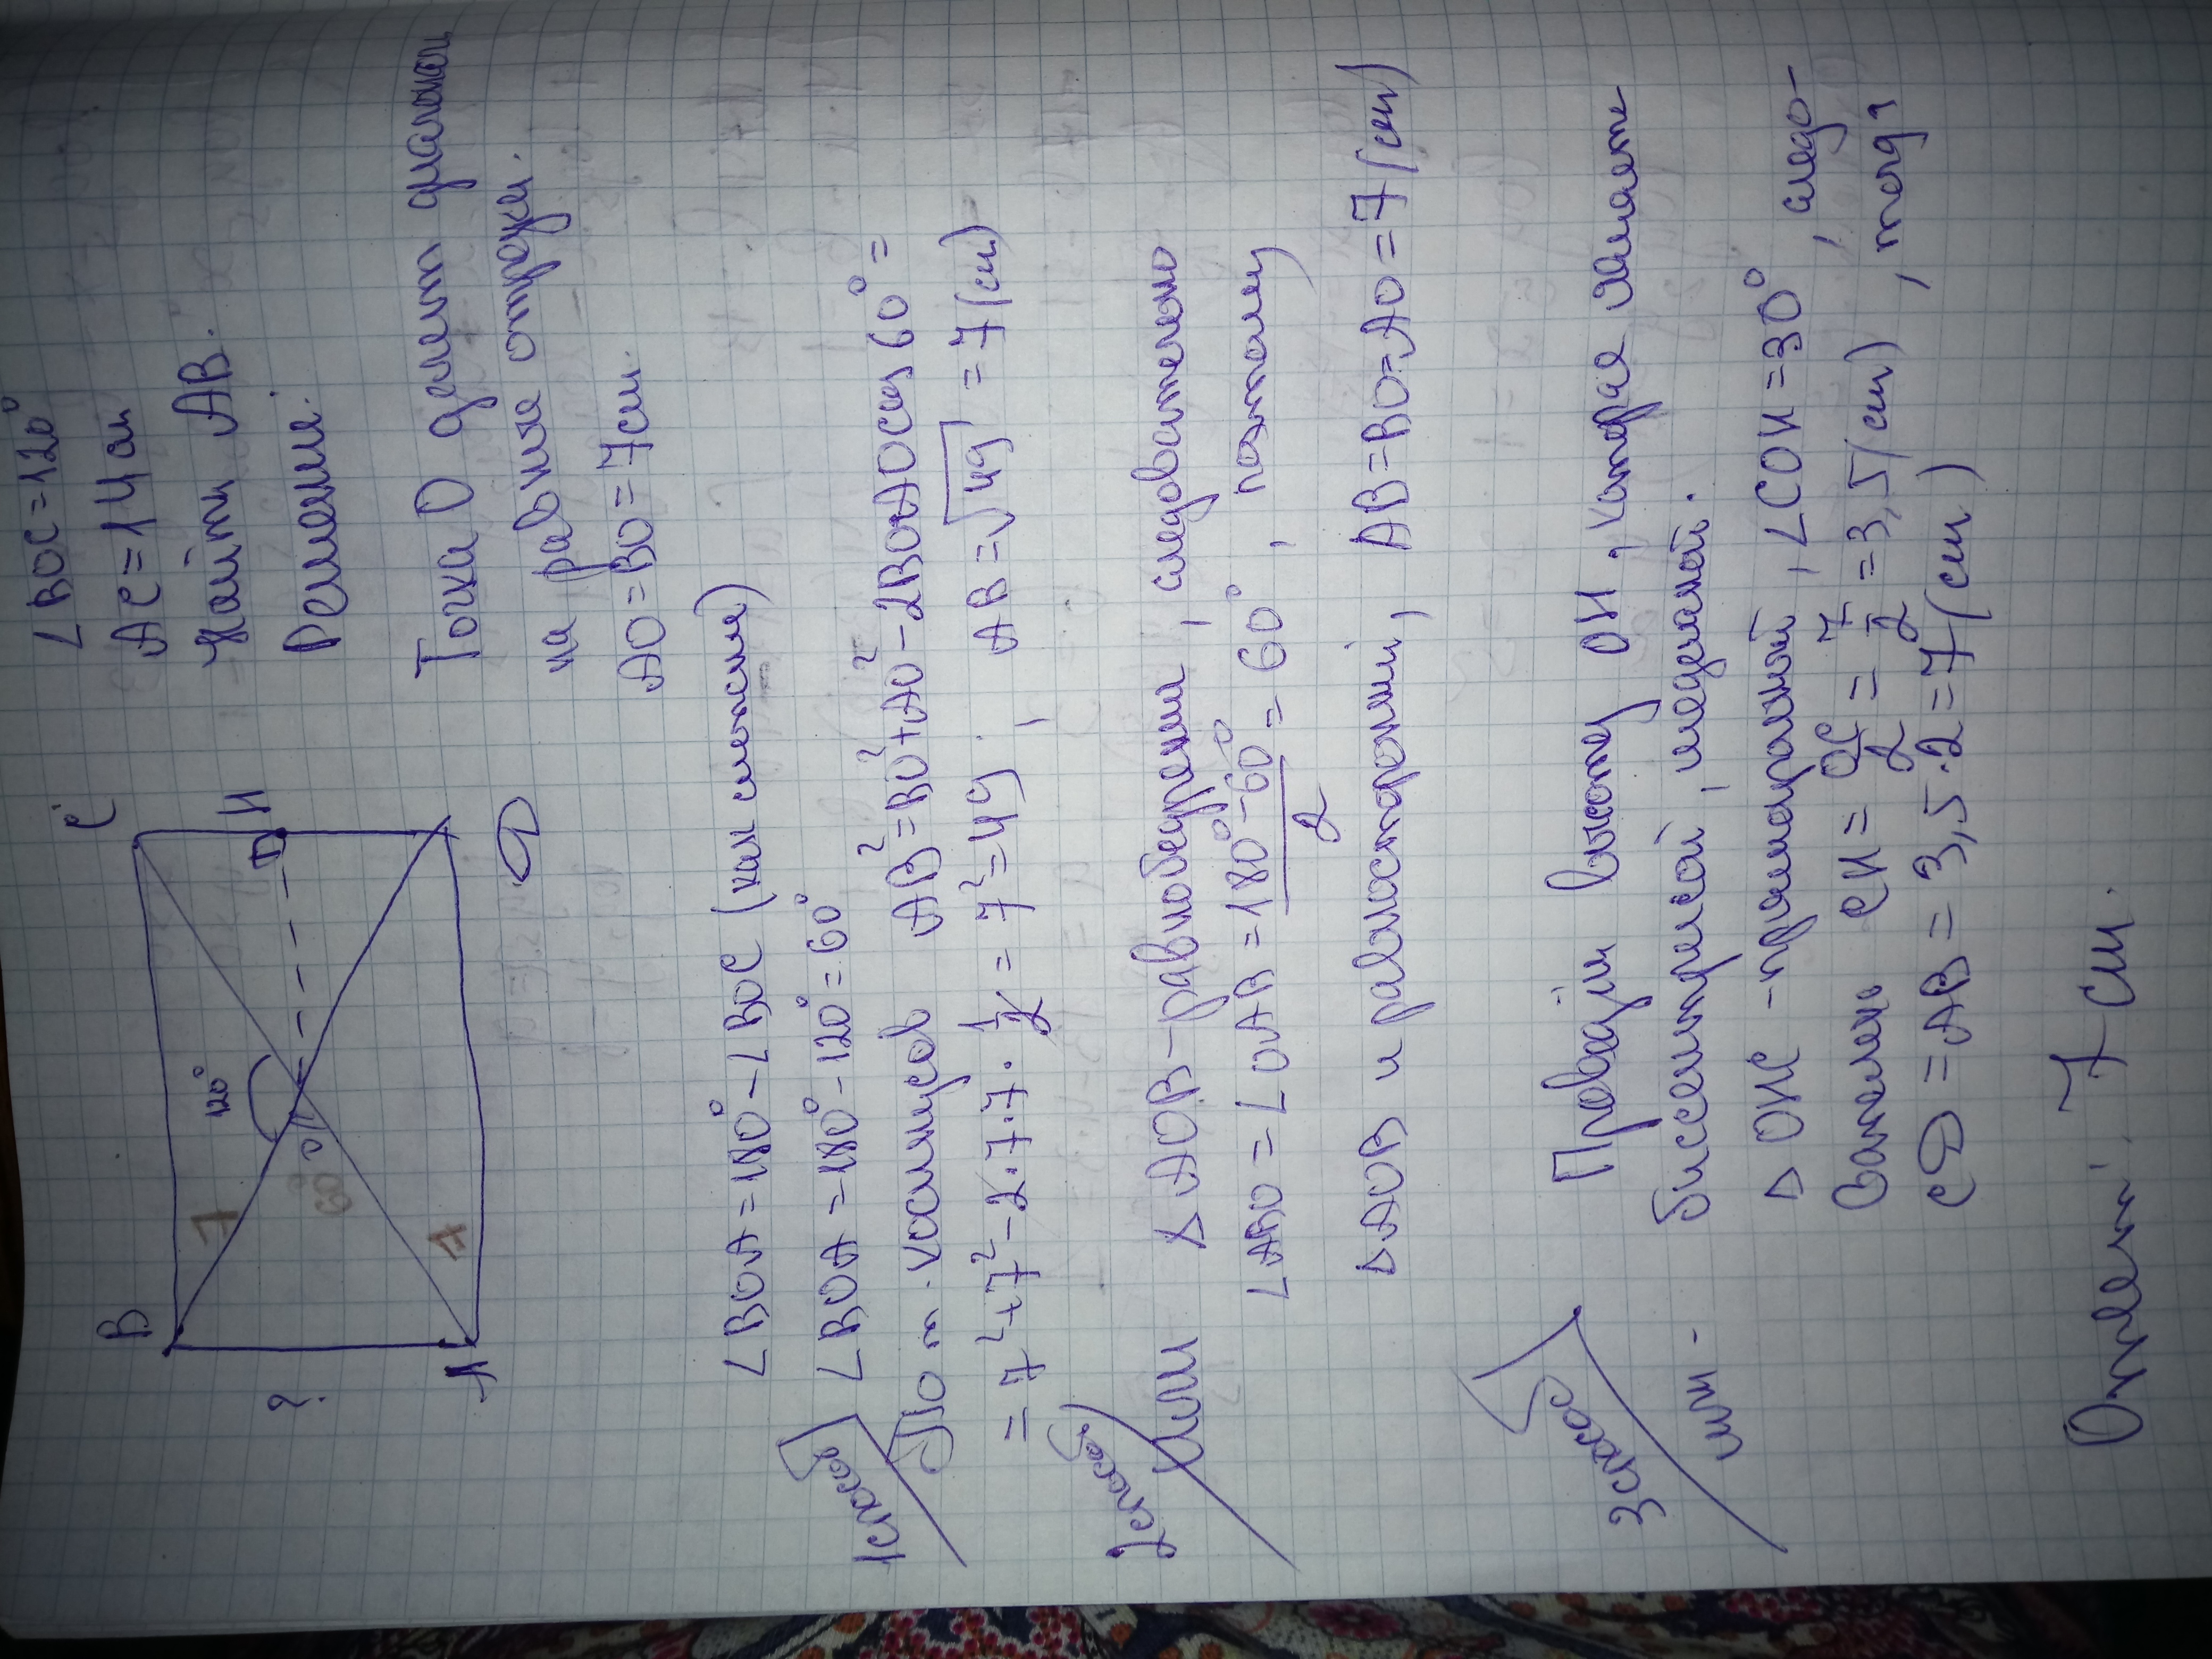 B
C
120°
7
60°
O
H
?
7
A
D
∠BOC=120°
AC=14см
Найти AB.
Решение:
Точка O делит диагонали
на равные отрезки.
AO=BO=7см.
∠BOA=180°-∠BOC (как смежные)
∠BOA=180°-120°=60°
1способ
По т. косинусов AB²=BO²+AO²-2BO·AO cos 60°=
=7²+7²-2·7·7·1/2=7²=49; AB=√49=7(см)
2способ
или △AOB-равнобедрен , следовательно
∠ABO=∠OAB=(180°-60°)/2=60°, поэтому
△AOB и равносторонний, AB=BO=AO=7(см)
3способ
или - Проведём высоту OH, которая является
биссектрисой, медианой.
△OHC-прямоугольный, ∠COH=30°, следо-
вательно CH=OC/2=7/2=3,5(см), тогда
CD=AB=3,5·2=7(см)
Ответ: 7 см.